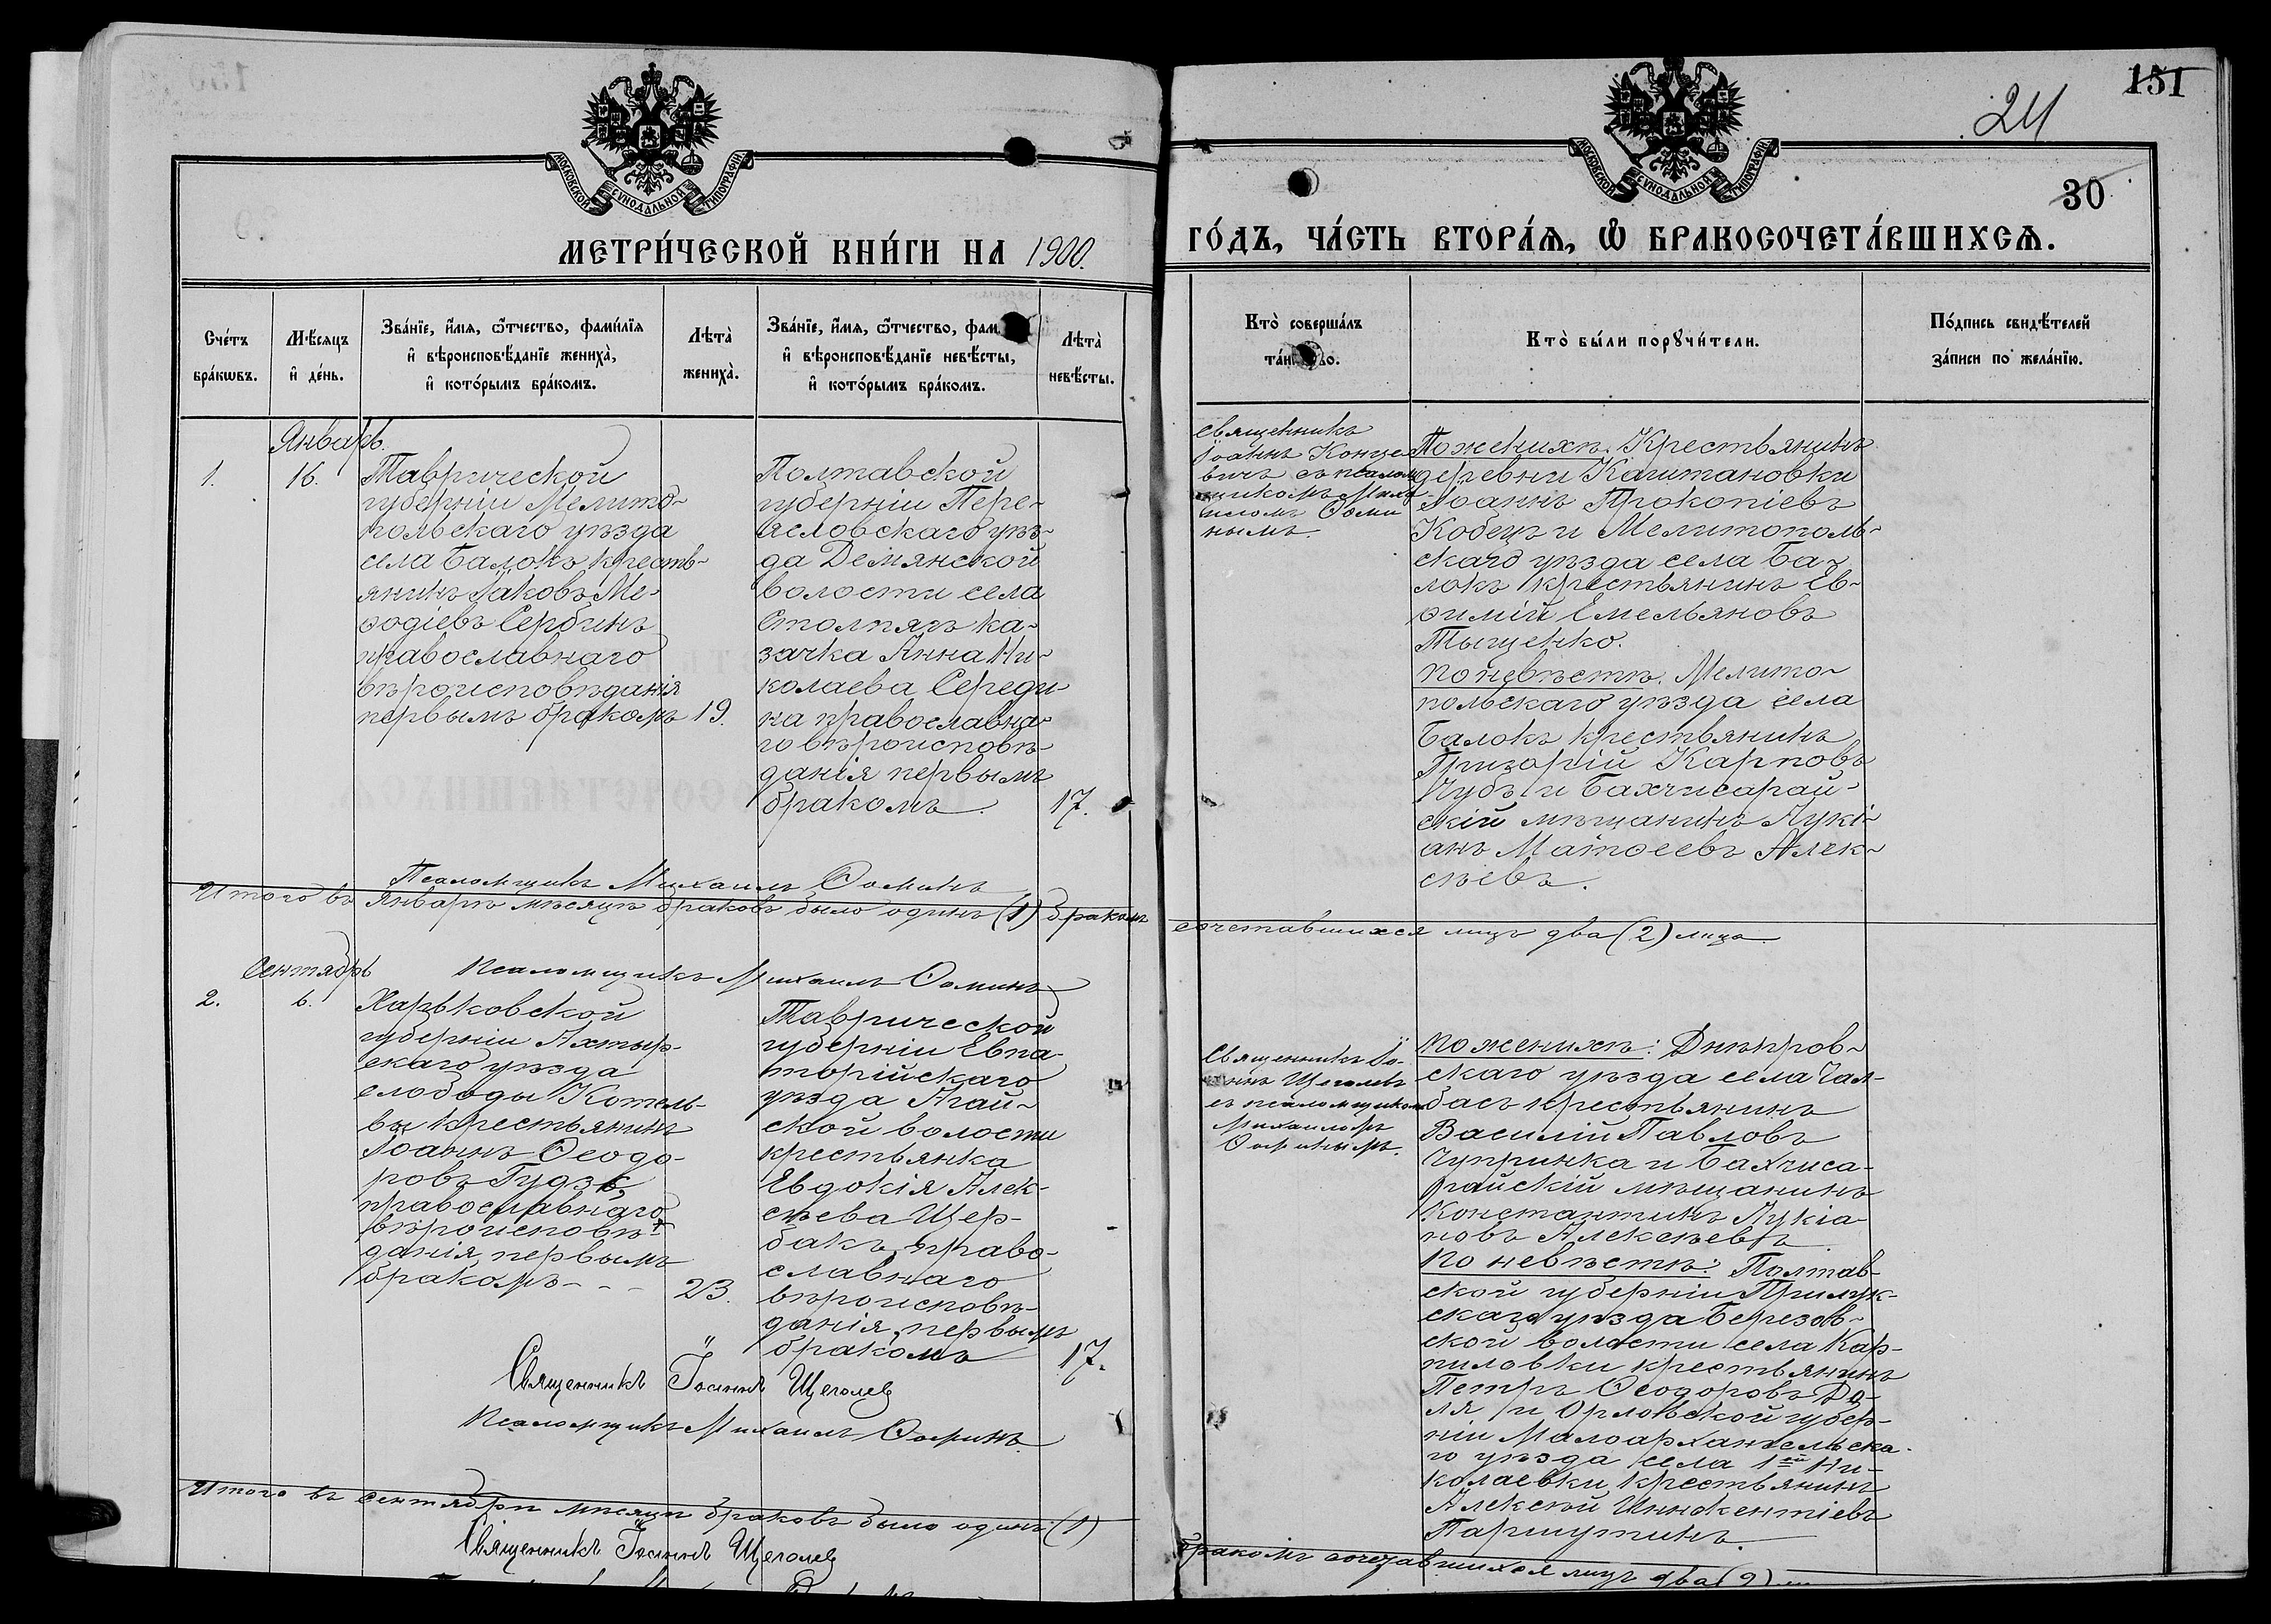 151
24
30
МОСКОВСКОЙ СѴНОДАЛЬНОЙ ТИПОГРАФІИ
МОСКОВСКОЙ СѴНОДАЛЬНОЙ ТИПОГРАФІИ
МЕТРИ́ЧЕСКОЙ КНИ́ГИ НА 1900.
ГО́ДЪ, ЧА́СТЬ ВТОРА́Ѧ, Ѡ҆ БРАКОСОЧЕТА́ВШИХСѦ.
Сче́тъ
бра́кѡвъ.
Мѣ́сяцъ
и҆ де́нь.
Зва́нїе, и҆́мя, ѻ҆́тчество, фами́лїя
и҆ вѣроисповѣ́данїе жениха̀,
и҆ кото́рымъ бра́комъ.
Лѣта̀
жениха̀.
Зва́нїе, и҆́мя, ѻ҆́тчество, фам
и҆ вѣроисповѣ́данїе невѣ́сты,
и҆ кото́рымъ бра́комъ.
Лѣта̀
невѣ́сты.
Кто̀ соверша́лъ
та́ во.
Кто̀ бы́ли порꙋчи́тели.
По́дпись свидѣ́телей
за́писи по жела́нїю.
Январь.
1.
16.
Таврической
губерніи Мелито-
польскаго уѣзда
села Балокъ кресть-
янинъ Іаковъ Ме-
ѳодіевъ Сербинъ
православнаго
вѣроисповѣданія
первымъ бракомъ
19.
Полтавской
губерніи Пере-
яcловскаго уѣз-
да Демянской
волости села
Столпягъ ка-
зачка Анна Ни-
колаева Середи-
на православна-
го вѣроисповѣ-
данія первымъ
бракомъ.
17.
Священникъ
Іоаннъ Конце
вичъ съ псалом
щикомъ Миха
иломъ Ѳоми
нымъ.
По женихѣ. Крестьянинъ
деревни Капитановки
Іоаннъ Прокопіевъ
Кобецъ и Мелитополь-
скаго уѣзда села Ба-
локъ крестьянинъ Ев-
ѳимій Емельяновъ
Тыщенко.
По невѣстѣ. Мелито-
польскаго уѣзда села
Балокъ крестьянинъ
Григорій Карповъ
Чубъ и Бахчисарай-
скій мѣщанинъ Лукі-
анъ Матѳеевъ Алек-
сѣевъ.
Псаломщикъ Михаилъ Ѳоминъ
Итого въ Январѣ мѣсяцѣ браковъ было одинъ (1) бракомъ
сочетавшихся лицъ два (2) лица
Псаломщикъ Михаилъ Ѳоминъ
Сентябрь
2.
6.
Харьковской
губерніи Ахтыр-
скаго уѣзда
слободы Котель-
вы крестьянинъ
Іоаннъ Ѳеодо-
ровъ Гудзь,
православнаго
вѣроисповѣ-
данія, первымъ
бракомъ - - -
23.
Таврической
губерніи Евпа-
торійскаго
уѣзда Агай-
ской волости
крестьянка
Евдокія Алек-
сѣева Щер-
бакъ, право-
славнаго
вѣроисповѣ-
данія, первымъ
бракомъ
17.
Священникъ Іо-
аннъ Щеголевъ
съ псаломщикомъ
Михаиломъ
Ѳоминымъ.
По женихѣ: Днѣпров-
скаго уѣзда села Чал-
басъ крестьянинъ
Василій Павловъ
Чупринка и Бахчиса-
райскій мѣщанинъ
Константинъ Лукіа-
новъ Алексѣевъ.
По невѣстѣ: Полтав-
ской губерніи Прилук-
скаго уѣзда Березов-
ской волости села Кар-
пиловки крестьянинъ
Петръ Ѳеодоровъ До-
ля и Орловской губер-
ніи Малоархангельска-
го уѣзда села 1ой Ни-
колаевки, крестьянинъ
Алексѣй Иннокентіевъ
Паршутинъ.
Священникъ Іоаннъ Щеголев
Псаломщикъ Михаилъ Ѳоминъ.
Итого въ сентябрѣ мѣсяцѣ браковъ было одинъ (1)
бракомъ сочетавшихся лицъ два (2)
Священникъ Іоаннъ Щеголев